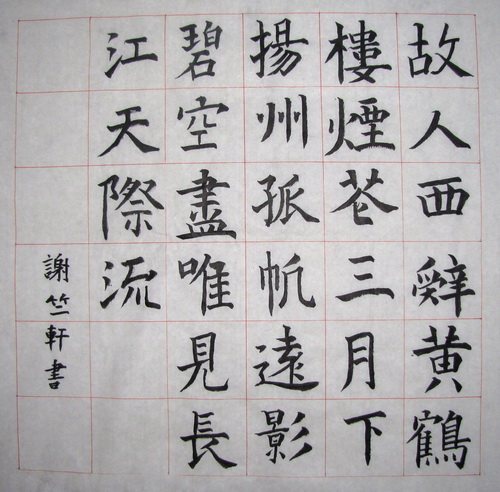 故人西辤黄鶴
樓煙苍三月下
揚州孤帆遠影
碧空盡唯見長
江天際流
謝竺軒書